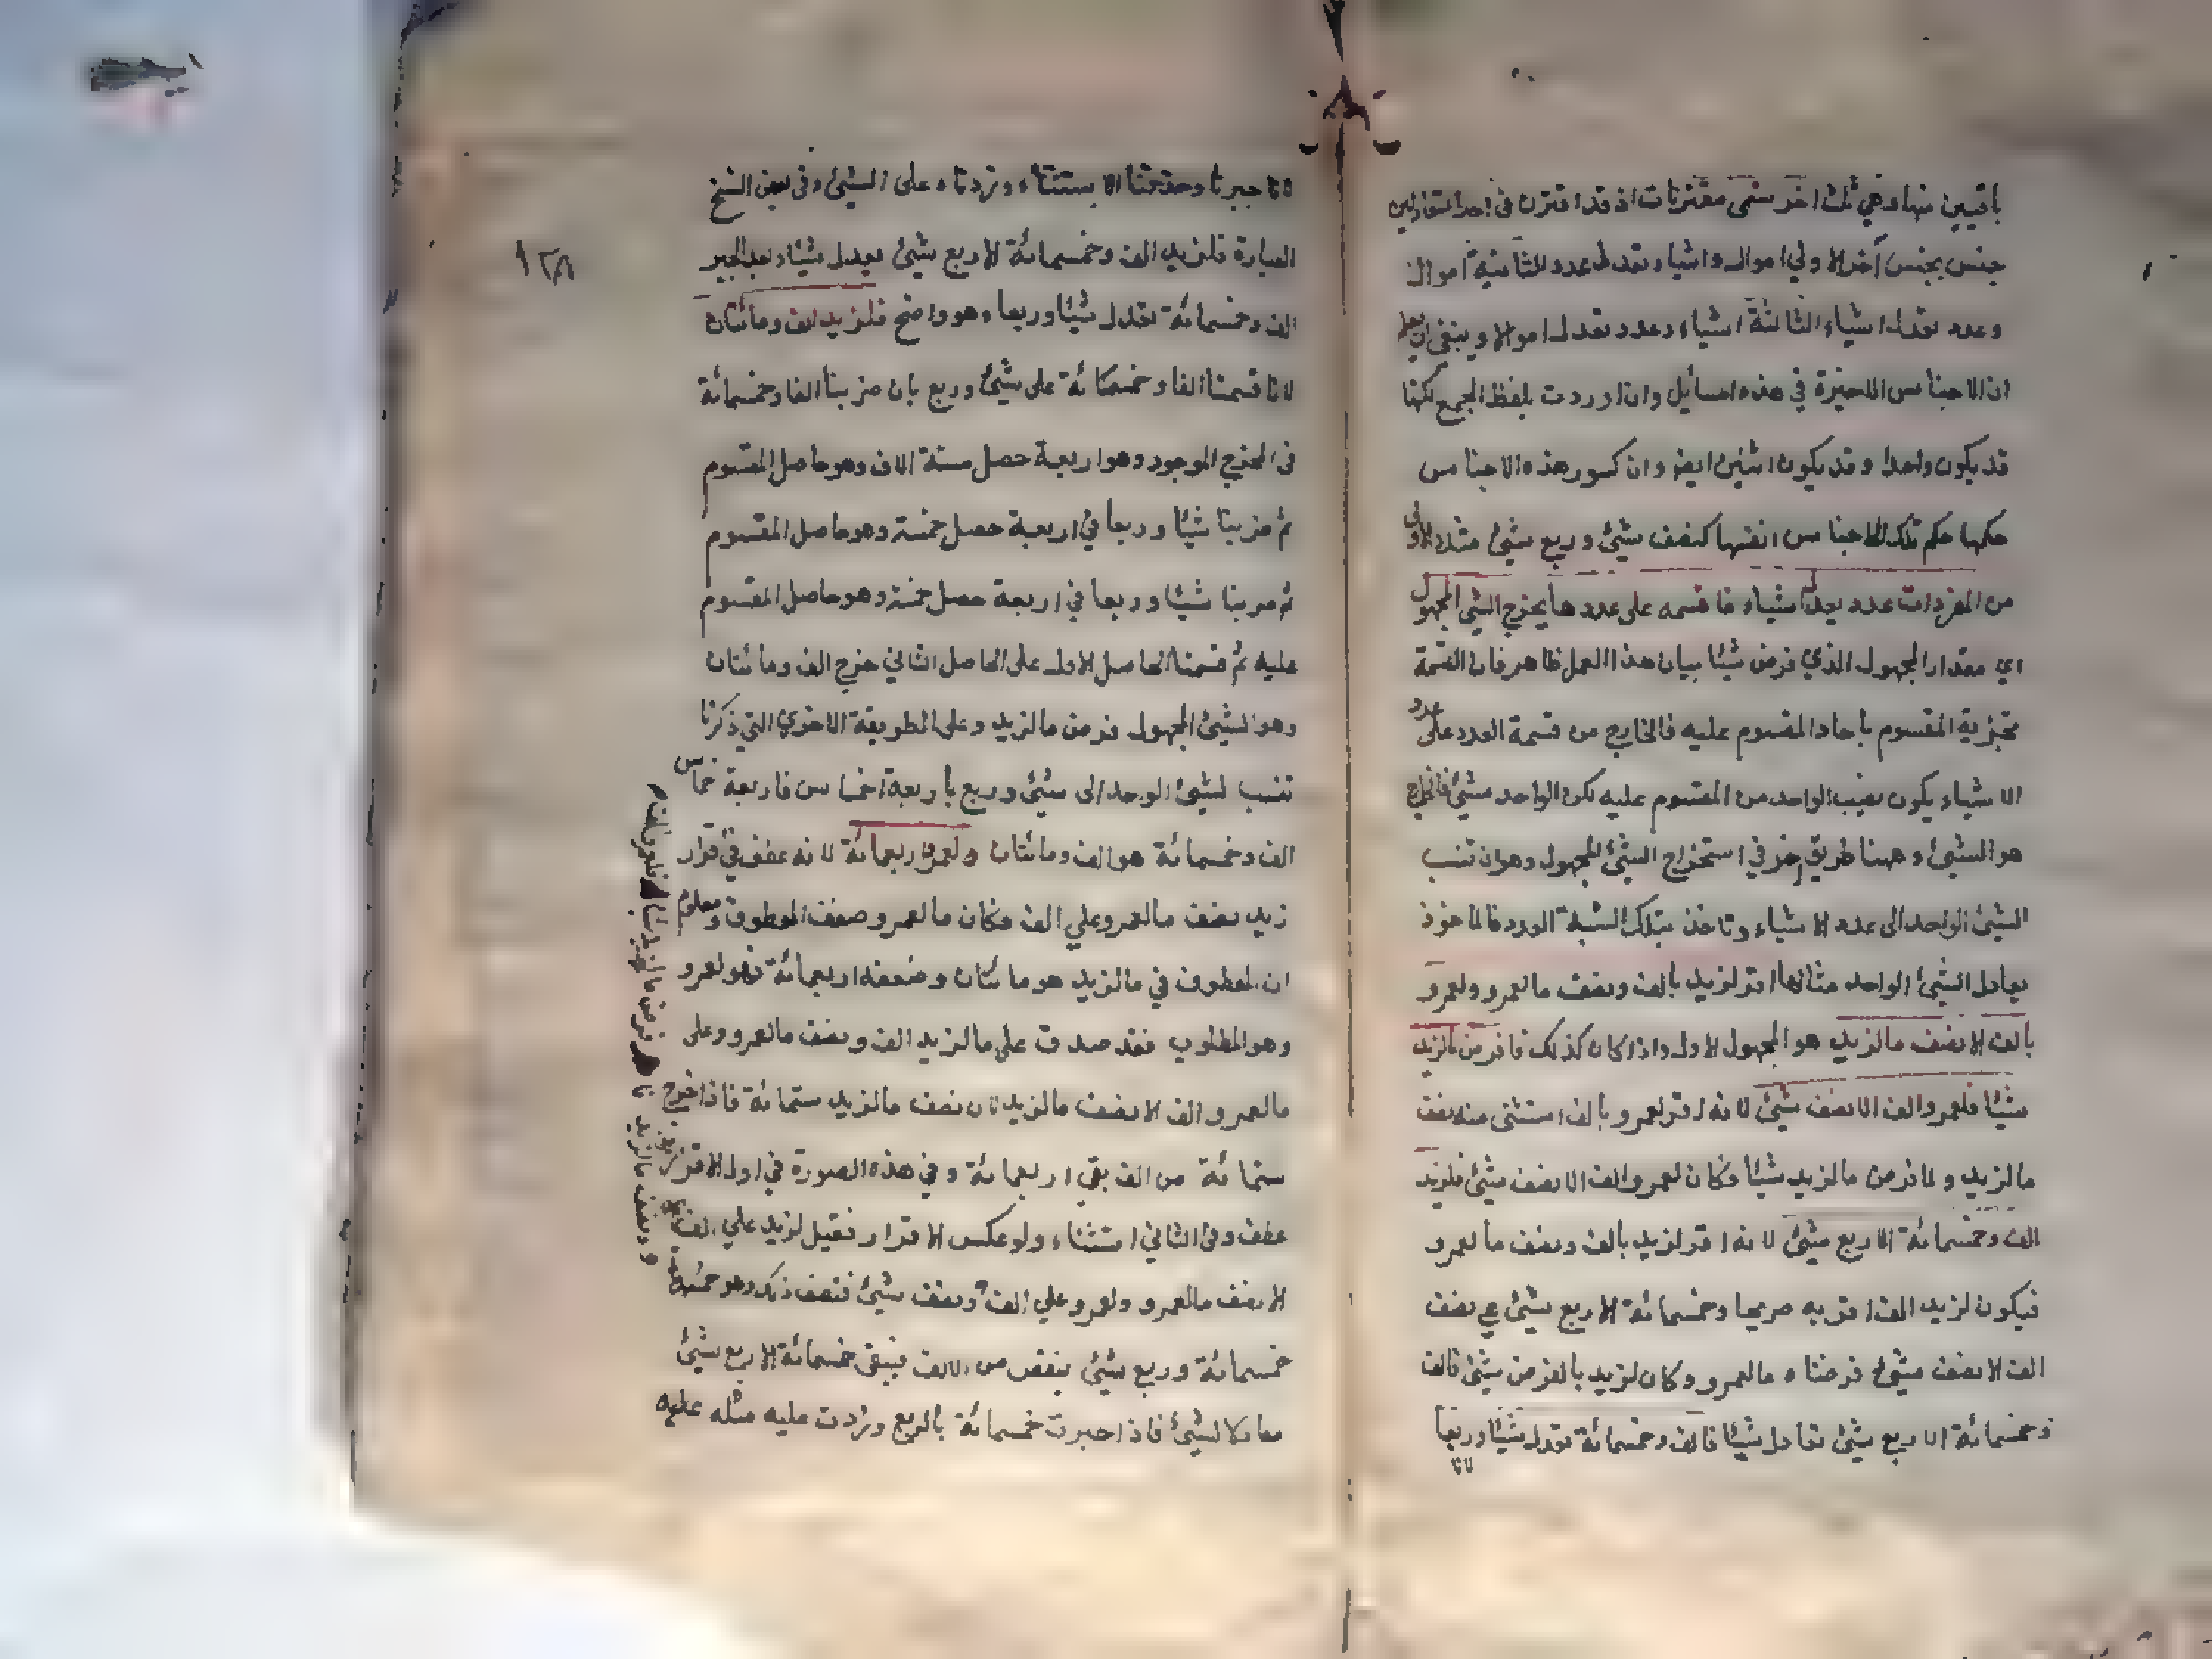 باقيين منها وهي ثلث اخر سمى مقترنات اذ قد اقترن في احد المتعادلين
جنس بجنس آخر الاولي اموال واشياء تعدل عدد الثانية اموال
وعدد تعدل اشياء الثالثة اشياء وعدد تعدل اموالا وينبغي ان يعلم
ان الاجناس الاخيرة في هذه المسايل وان اوردت بلفظ الجمع لكنها
قد يكون واحدا وقد يكون اثنين ايضا وان كسور هذه الاجناس
حكمها حكم تلك الاجناس انفسها كنصف شيئ وربع شيئ مثلا الاولى
من المفردات عدد يعدل اشياء فاقسمه على عددها يخرج الشئ المجهول
اي مقدار المجهول الذي فرض شيئا بيان هذا العمل ظاهر فان القسمة
تجزية المقسوم بآحاد المقسوم عليه فالخارج من قسمة العدد على عدد
الاشياء يكون نصيب الواحد من المقسوم عليه لكن الواحد شيئ فالخارج
هو الشيئ وههنا طريق اخر في استخراج الشيئ المجهول وهو ان تنسب
الشيئ الواحد الى عدد الاشياء وتاخذ بتلك النسبة العدد فالماخوذ
يعادل الشيئ الواحد مثالها اقر لزيد بالف ونصف مالعمرو ولعمرو
بالف الا نصف مالزيد هو المجهول الاول واذا كان كذلك فافرض مالزيد
شيئا فلعمرو الف الا نصف شيئ لانه اقر لعمرو بالف استثنى منه نصف
مالزيد ولما فرض مالزيد شيئا فكان لعمرو الف الا نصف شيئ فلزيد
الف وخمسمائة الا ربع شيئ لانه اقر لزيد بالف ونصف مالعمرو
فيكون لزيد الف اقر به صريحا وخمسمائة الا ربع شيئ هي نصف
الف الا نصف شيئ فرضناه مالعمرو وكان لزيد بالفرض شيئ فالف
وخمسمائة الا ربع شيئ تعادل شيئا فالف وخمسمائة تعدل شيئا وربعا
لانا
لانا جبرنا وحذفنا الاستثناء وزدناه على الشيئ وفي بعض النسخ
العبارة فلزيد الف وخمسمائة الا ربع شيئ يعدل شيئا وبعد الجبر
الف وخمسمائة تعدل شيئا وربعا وهو واضح فلزيد الف ومائتان
لانا قسمنا الفا وخمسمائة على شيئ وربع بان ضربنا الفا وخمسمائة
في المخرج الموجود وهو اربعة حصل ستة الاف وهو حاصل المقسوم
ثم ضربنا شيئا وربعا في اربعة حصل خمسة وهو حاصل المقسوم
ثم ضربنا شيئا وربعا في اربعة حصل خمسة وهو حاصل المقسوم
عليه ثم قسمنا الحاصل الاول على الحاصل الثاني خرج الف ومائتان
وهو الشيئ المجهول فرض مالزيد وعلى الطريقة الاخري التي ذكرنا
تنسب الشيئ الواحد الى شيئ وربع باربعة اخماس فاربعة اخماس
الف وخمسمائة هو الف ومائتان ولعمرو اربعمائة لانه عطف في اقرار
زيد نصف مالعمرو على الف فكان مالعمرو ضعف المعطوف ومعلوم
ان المعطوف في مالزيد هو مائتان وضعفه اربعمائة فهو لعمرو
وهو المطلوب فقد صدق على مالزيد الف ونصف مالعمرو وعلى
مالعمرو الف الا نصف مالزيد لان نصف مالزيد ستمائة فاذا خرج
ستمائة من الف بقي اربعمائة وفي هذه الصورة في اول الاقرار
عطف وفي الثاني استثناء ولو عكس الاقرار فقيل لزيد علي الف
الا نصف مالعمرو ولعمرو علي الف ونصف شيئ فنصف ذلك وهو
خمسمائة وربع شيئ ينقص من الالف فيبقى خمسمائة الا ربع شيئ
معادلا لشيئ فاذا جبرت خمسمائة بالربع وزدت عليه مثله عليه
ونصف مالزيد فافرض مالزيد شيئا فلعمرو الف
١٢٨